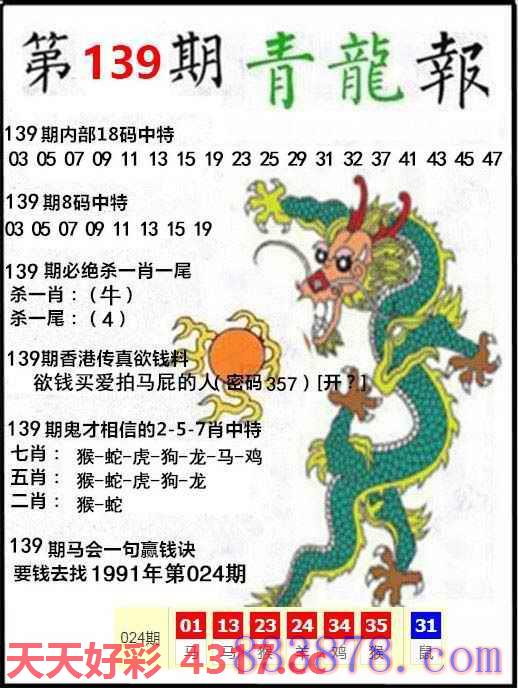 第139期青龍報
139期内部18码中特
03 05 07 09 11 13 15 19 23 25 29 31 32 37 41 43 45 47
139期8码中特
03 05 07 09 11 13 15 19
139期必绝杀一肖一尾
杀一肖：（牛）
杀一尾：（4）
139期香港传真欲钱料
欲钱买爱拍马屁的人（密码357）[开？]
139期鬼才相信的2-5-7肖中特
七肖：猴-蛇-虎-狗-龙-马-鸡
五肖：猴-蛇-虎-狗-龙
二肖：猴-蛇
139期马会一句赢钱诀
要钱去找1991年第024期
024期 01 13 23 24 34 35 31
马 马 猴 羊 鸡 猴 鼠
天天好彩 4317.cc